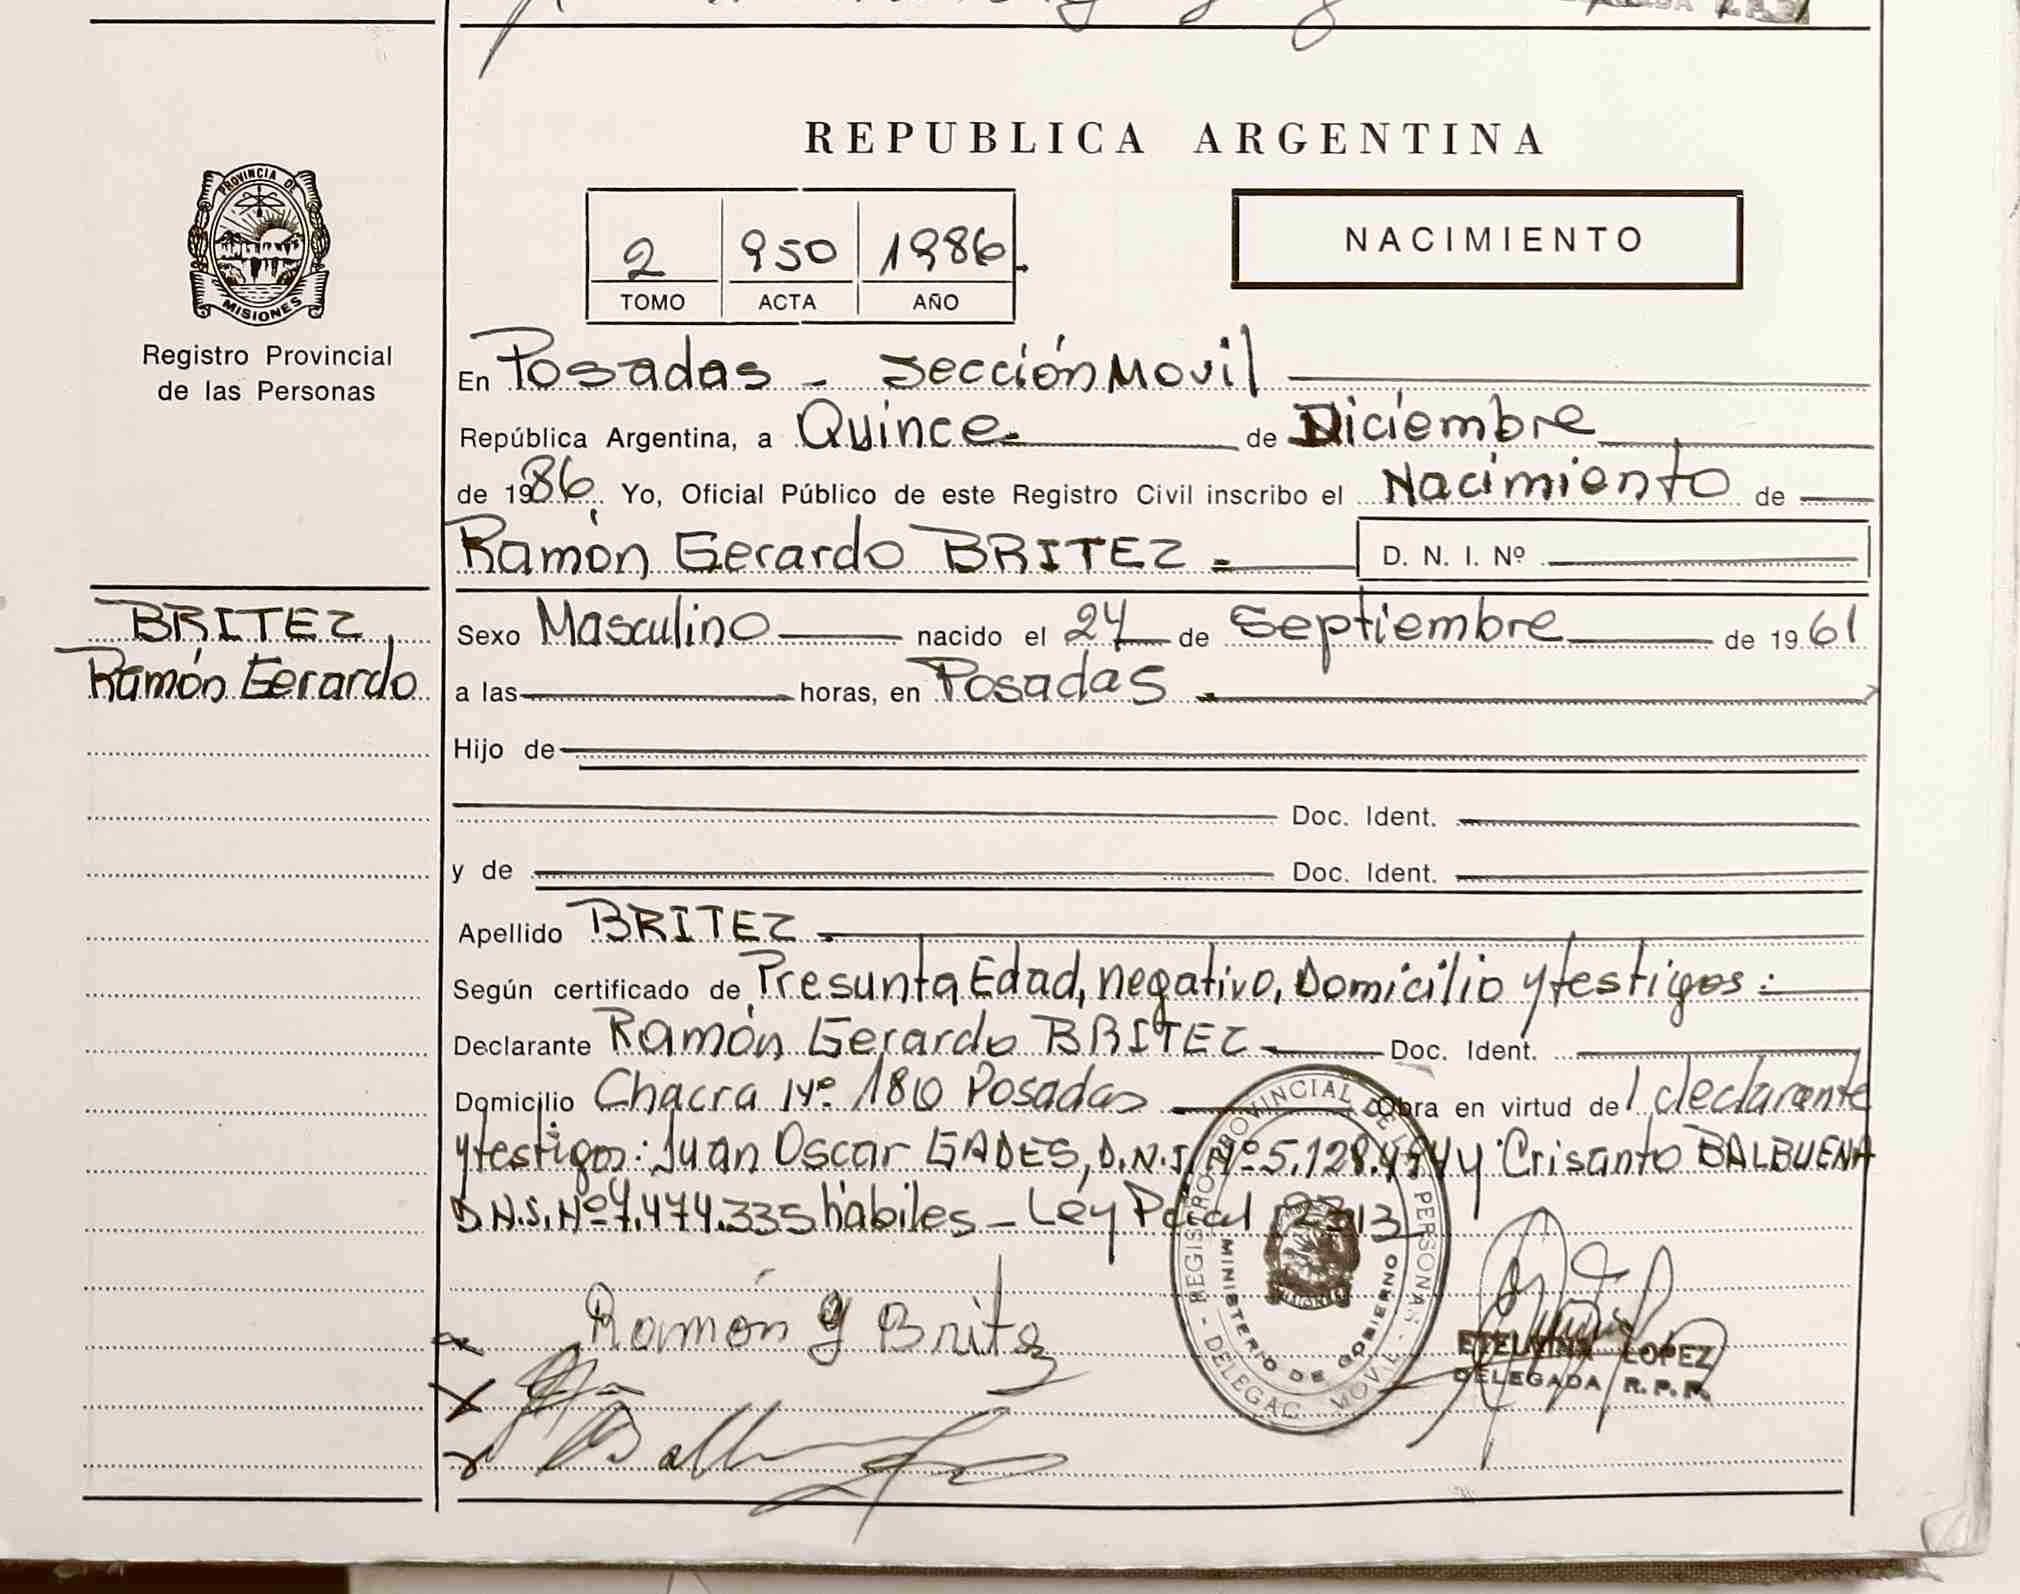 REPUBLICA ARGENTINA
PROVINCIA DE
MISIONES
Registro Provincial
de las Personas
2 950 1986
TOMO ACTA AÑO
NACIMIENTO
En Posadas - Sección Movil
República Argentina, a Quince de Diciembre
de 1986. Yo, Oficial Público de este Registro Civil inscribo el Nacimiento de
Ramón Gerardo BRITEZ D. N. I. Nº
BRITEZ,
Ramón Gerardo
Sexo Masculino nacido el 24 de Septiembre de 1961
a las horas, en Posadas
Hijo de
Doc. Ident.
y de Doc. Ident.
Apellido BRITEZ
Según certificado de Presunta Edad, negativo, Domicilio y testigos:
Declarante Ramón Gerardo BRITEZ Doc. Ident.
Domicilio Chacra Nº 180 Posadas Obra en virtud del declarante
y testigos: Juan Oscar GADES, D.N.I. Nº 5.128. y Crisanto BALBUENA
D.N.I. Nº 7.474.335 hábiles - Ley Pcial
Ramón G Britez
REGISTRO PROVINCIAL DE PERSONAS - DELEGAC. MOVIL -
MINISTERIO DE GOBIERNO
ETELVINA LOPEZ
DELEGADA R.P.P.